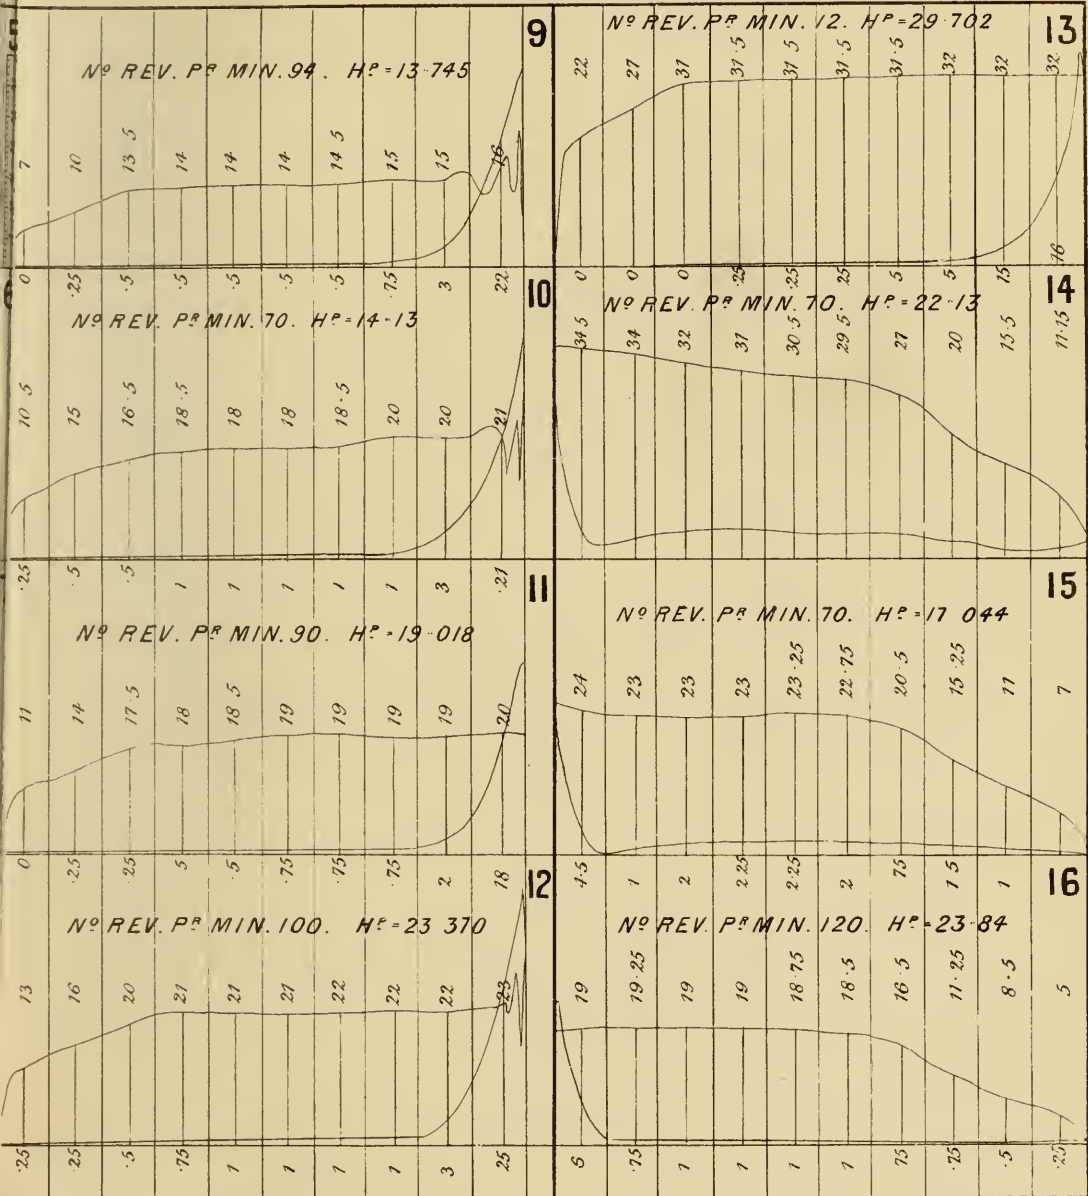 9
Nº REV. Pᴿ MIN. 94. Hᴾ = 13·745
7 10 13 5 14 14 14 14 5 15 15 16
0 ·25 ·5 ·5 ·5 ·5 ·5 ·75 3 22
10
Nº REV. Pᴿ MIN. 70. Hᴾ = 14·13
10 5 15 16·5 18·5 18 18 18·5 20 20 21
·25 ·5 ·5 1 1 1 1 1 3 ·21
11
Nº REV. Pᴿ MIN. 90. Hᴾ = 19·018
11 14 17·5 18 18·5 19 19 19 19 20
0 ·25 ·25 5 ·5 ·75 ·75 ·75 2 18
12
Nº REV. Pᴿ MIN. 100. Hᴾ = 23 370
13 16 20 21 21 21 22 22 22 23
·25 ·25 ·5 ·75 1 1 1 1 3 25
13
Nº REV. Pᴿ MIN. 12. Hᴾ = 29·702
22 27 31 31·5 31·5 31·5 31·5 32 32 32
0 0 0 ·25 ·25 ·25 5 5 75 16
14
Nº REV. Pᴿ MIN. 70. Hᴾ = 22·13
34 5 34 32 31 30·5 29·5 27 20 15·5 11·15
15
Nº REV. Pᴿ MIN. 70. Hᴾ = 17 044
24 23 23 23 23·25 22·75 20·5 15·25 11 7
4·5 1 2 2·25 2·25 2 75 1 5 1
16
Nº REV. Pᴿ MIN. 120. Hᴾ = 23·84
19 19·25 19 19 18·75 18·5 16·5 11·25 8·5 5
6 ·75 1 1 1 1 75 ·75 ·5 ·25